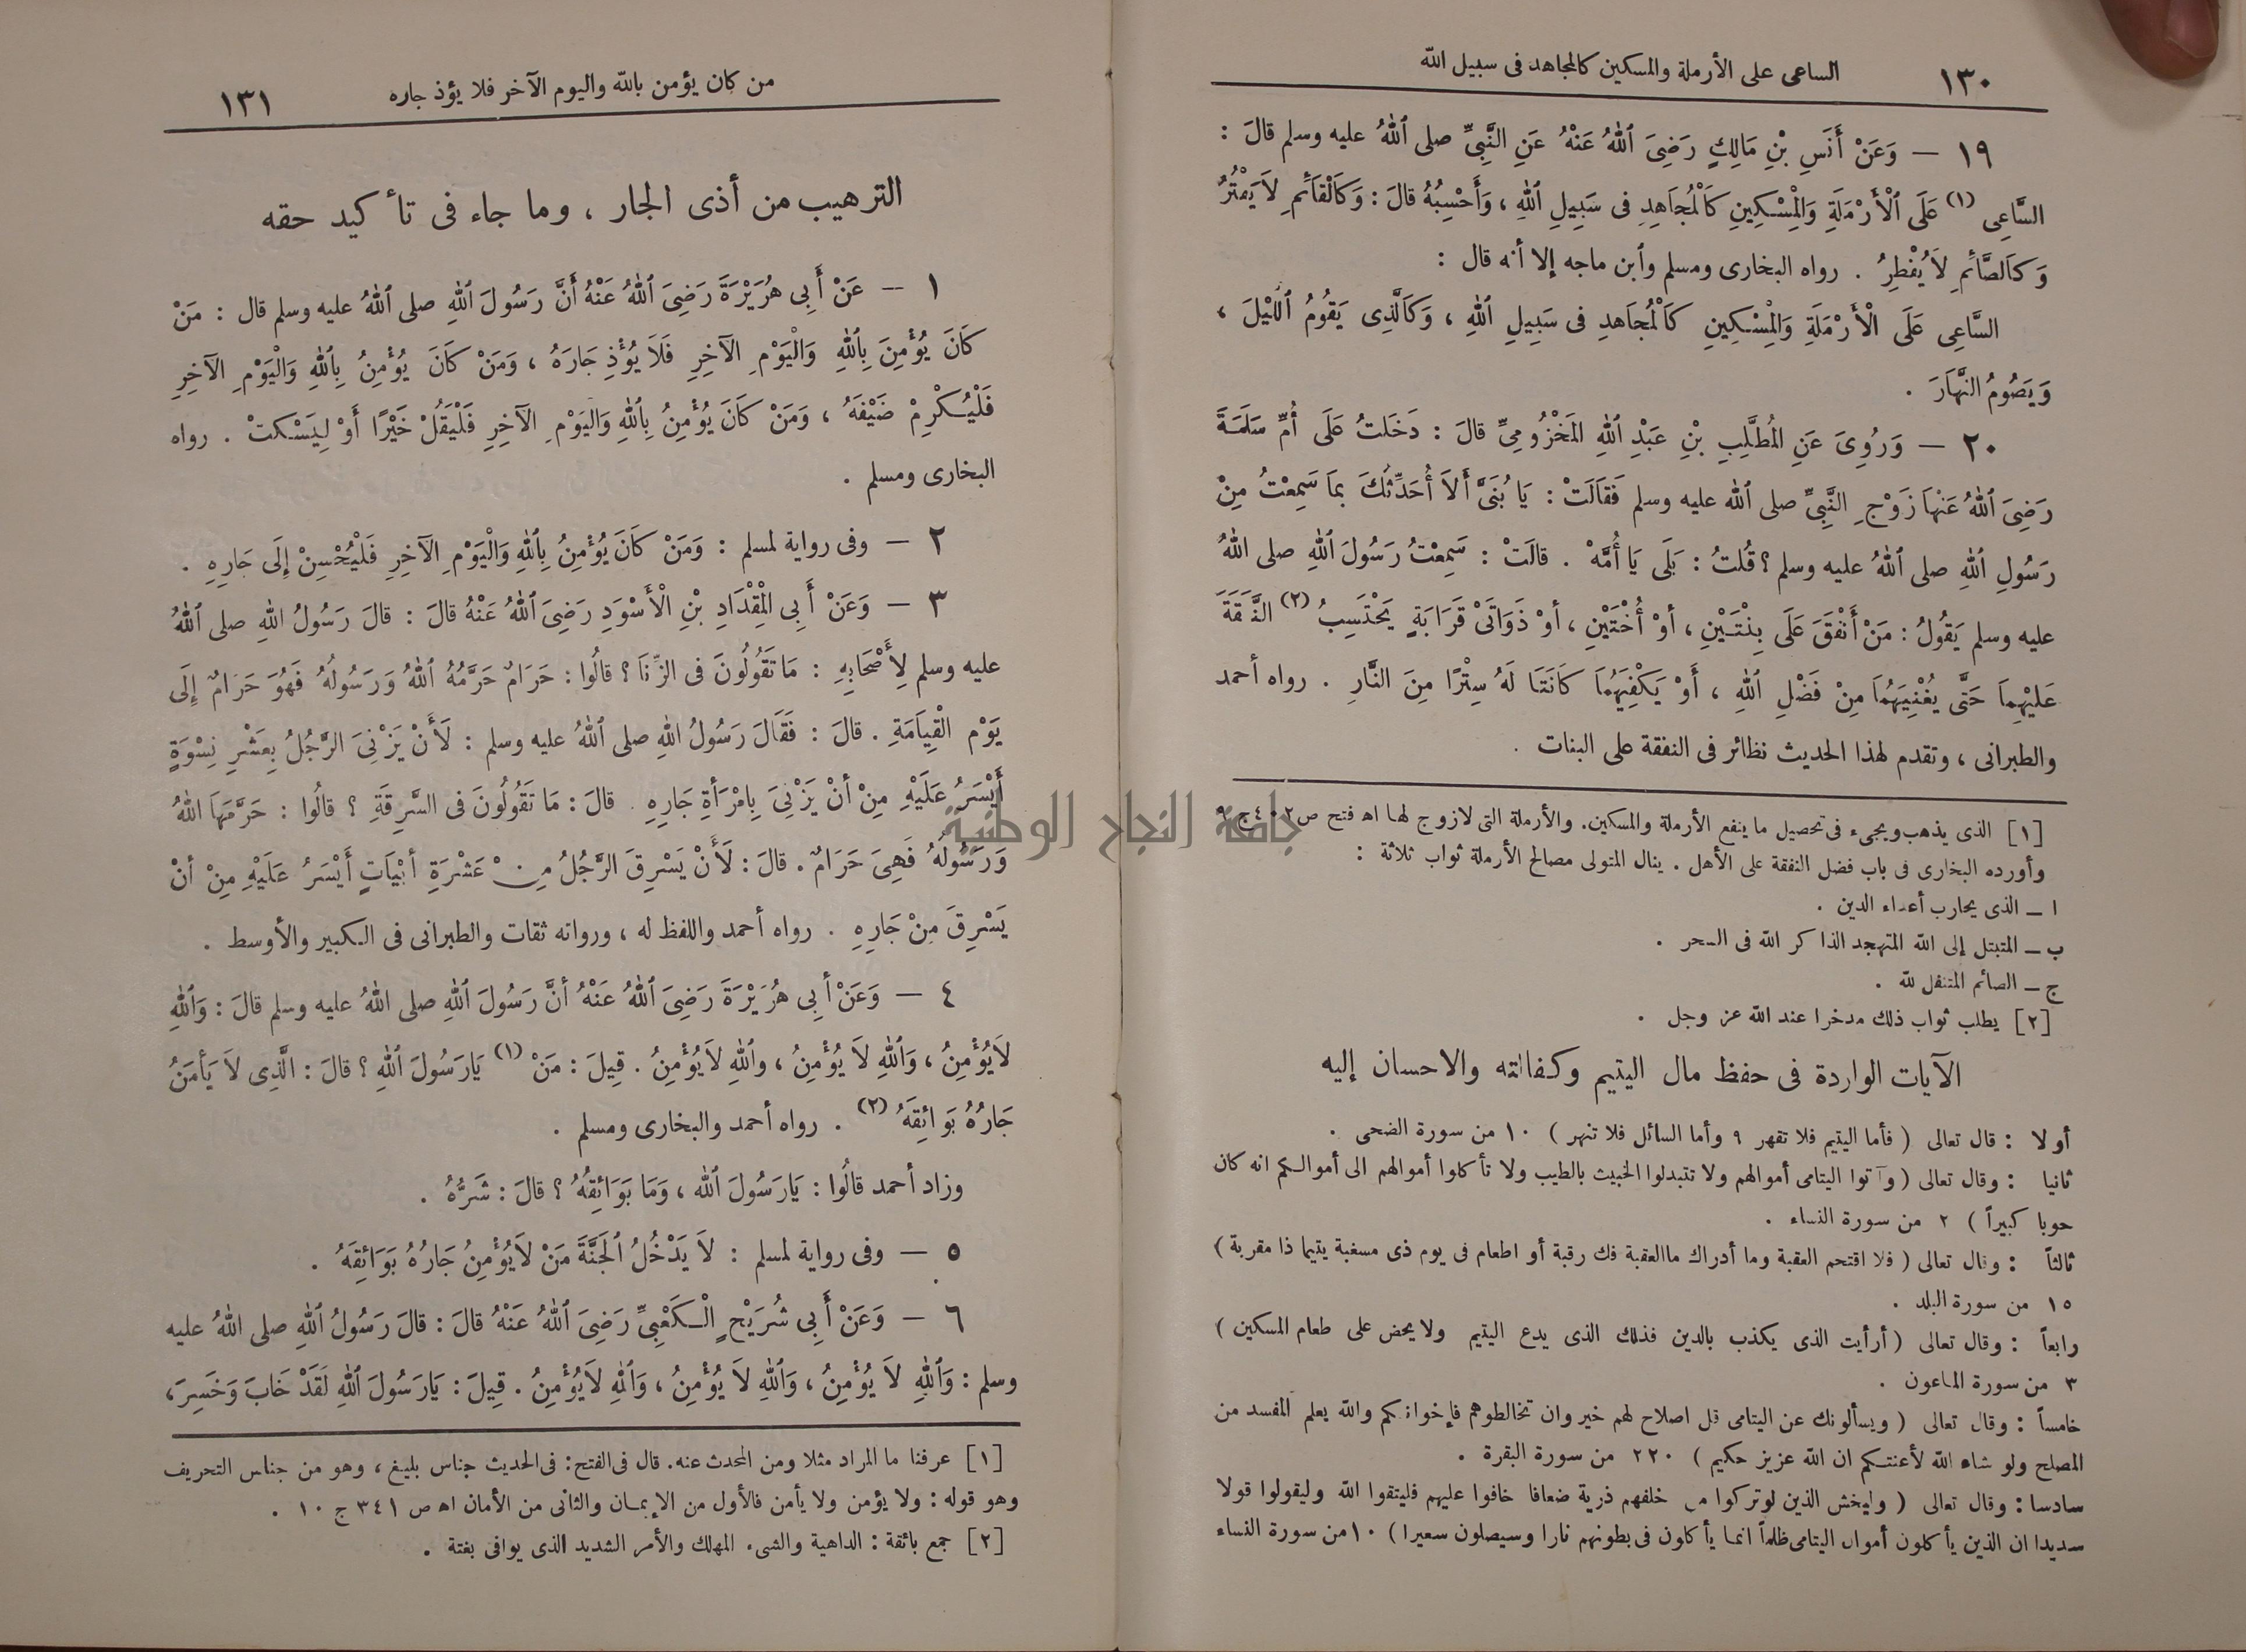 ١٣٠ الساعى على الأرملة والمسكين كالمجاهد فى سبيل الله
١٩ — وَعَنْ أَنَسِ بْنِ مَالِكٍ رَضِىَ ٱللهُ عَنْهُ عَنِ النَّبِىِّ صلى ٱللهُ عليه وسلم قالَ :
السَّاعِى (١) عَلَى ٱلْأَرْمَلَةِ وَالْمِسْكِينِ كَٱلْمُجَاهِدِ فى سَبِيلِ ٱللهِ ، وَأَحْسِبُهُ قالَ : وَكَٱلْقَائِمِ لَا يَفْتُرُ
وَكَٱلصَّائِمِ لَا يُفْطِرُ . رواه البخارى ومسلم وٱبن ماجه إلا أنه قال :
السَّاعِى عَلَى الْأَرْمَلَةِ وَالْمِسْكِينِ كَٱلْمُجَاهدِ فى سَبِيلِ ٱللهِ ، وَكَٱلَّذِى يَقُومُ ٱللَّيْلَ ،
وَيَصُومُ النَّهَارَ .
٢٠ — وَرُوِىَ عَنِ الْمُطَّلِبِ بْنِ عَبْدِ ٱللهِ المَخْزُومِىِّ قالَ : دَخَلتُ عَلَى أُمِّ سَلَمَةَ
رَضِىَ ٱللهُ عَنْهَا زَوْجِ النَّبِىِّ صلى ٱلله عليه وسلم فَقَالَتْ : يَا بُنَىَّ أَلَا أُحَدِّثُكَ بمَا سَمِعْتُ مِنْ
رَسُولِ ٱللهِ صلى ٱللهُ عليه وسلم ؟ قُلتُ : بَلَى يَا أُمَّهْ . قالَتْ : سَمِعْتُ رَسُولَ ٱللهِ صلى اللهُ
عليه وسلم يَقُولُ : مَنْ أَنْفَقَ عَلَى بِنْتَيْنِ ، أوْ أُخْتَيْنِ ، أوْ ذَوَاتَىْ قَرَابَةٍ يَحْتَسِبُ (٢) النَّفَقَةَ
عَلَيْهِمَا حَتَّى يُغْنِيَهُمَا مِنْ فَضْلِ ٱللهِ ، أَوْ يَكْفِيَهُمَا كَانَتَا لَهُ سِتْرًا مِنَ النَّارِ . رواه أحمد
والطبرانى ، وتقدم لهذا الحديث نظائر فى النفقة على البنات .
[١] الذى يذهب ويجىء فى تحصيل ما ينفع الأرملة والمسكين. والأرملة التى لازوج لها اه فتح ص ٤٠٢ ج ٩
وأورده البخارى فى باب فضل النفقة على الأهل . ينال المتولى مصالح الأرملة ثواب ثلاثة :
ا — الذى يحارب أعداء الدين .
ب — المتبتل إلى الله المتهجد الذاكر الله فى السحر .
ج — الصائم المتنفل لله .
[٢] يطلب ثواب ذلك مدخرا عند الله عز وجل .
الآيات الواردة فى حفظ مال اليتيم وكفالته والاحسان إليه
أولا : قال تعالى ( فأما اليتيم فلا تقهر ٩ وأما السائل فلا تنهر ) ١٠ من سورة الضحى .
ثانيا : وقال تعالى ( وآتوا اليتامى أموالهم ولا تتبدلوا الخبيث بالطيب ولا تأكلوا أموالهم الى أموالكم انه كان
حوبا كبيراً ) ٢ من سورة النساء .
ثالثاً : وقال تعالى ( فلا اقتحم العقبة وما أدراك ماالعقبة فك رقبة أو اطعام فى يوم ذى مسغبة يتيما ذا مقربة )
١٥ من سورة البلد .
رابعاً : وقال تعالى ( أرأيت الذى يكذب بالدين فذلك الذى يدع اليتيم ولا يحض على طعام المسكين )
٣ من سورة الماعون .
خامساً : وقال تعالى ( ويسألونك عن اليتامى قل اصلاح لهم خير وان تخالطوهم فإخوانكم والله يعلم المفسد من
المصلح ولو شاء الله لأعنتكم ان الله عزيز حكيم ) ٢٢٠ من سورة البقرة .
سادسا : وقال تعالى ( وليخش الذين لو تركوا من خلفهم ذرية ضعافا خافوا عليهم فليتقوا الله وليقولوا قولا
سديدا ان الذين يأكلون أموال اليتامى ظلماً انما يأكلون فى بطونهم نارا وسيصلون سعيرا ) ١٠ من سورة النساء
من كان يؤمن بالله واليوم الآخر فلا يؤذ جاره ١٣١
الترهيب من أذى الجار ، وما جاء فى تأكيد حقه
١ — عَنْ أَبِى هُرَيْرَةَ رَضِىَ ٱللهُ عَنْهُ أَنَّ رَسُولَ ٱللهِ صلى ٱللهُ عليه وسلم قال : مَنْ
كَانَ يُؤْمِنَ بِٱللهِ وَالْيَوْمِ الآخِرِ فَلَا يُؤْذِ جَارَهُ ، وَمَنْ كَانَ يُؤْمِنُ بِٱللهِ وَالْيَوْمِ الآخِرِ
فَلْيُكْرِمْ ضَيْفَهُ ، وَمَنْ كَانَ يُؤْمِنُ بِٱللهِ وَاليَوْمِ الآخِرِ فَلْيَقُلْ خَيْرًا أَوْ لِيَسْكتْ . رواه
البخارى ومسلم .
٢ — وفى رواية لمسلم : وَمَنْ كَانَ يُؤْمِنُ بِٱللهِ وَالْيَوْمِ الآخِرِ فَلْيُحْسِنْ إِلَى جَارِهِ .
٣ — وَعَنْ أَبِى الْمِقْدَادِ بْنِ الْأَسْوَدِ رَضِىَ ٱللهُ عَنْهُ قالَ : قالَ رَسُولُ اللهِ صلى ٱللهُ
عليه وسلم لِأَصْحَابِهِ : مَا تَقُولُونَ فى الزِّنَا ؟ قالُوا : حَرَامٌ حَرَّمُهُ ٱللهُ وَرَسُولُهُ فَهُوَ حَرَامٌ إِلَى
يَوْم الْقِيَامَةِ . قالَ : فَقَالَ رَسُولُ اللهِ صلى ٱللهُ عليه وسلم : لَأَنْ يَزْنِىَ الرَّجُلُ بِعَشْرِ نِسْوَةٍ
أَيْسَرُ عَلَيْهِ مِنْ أَنْ يَزْنِىَ بِامْرَأةِ جَارِهِ . قالَ : مَا تَقُولُونَ فى السَّرِقَةِ ؟ قالُوا : حَرَّمَهَا اللهُ
وَرَسُولُهُ فَهِىَ حَرَامٌ . قالَ : لَأَنْ يَسْرِقَ الرَّجُلُ مِنْ عَشْرَةِ أبْيَاتٍ أَيْسَرُ عَلَيْهِ مِنْ أنْ
يَسْرِقَ مِنْ جَارِهِ . رواه أحمد واللفظ له ، ورواته ثقات والطبرانى فى الكبير والأوسط .
٤ — وَعَنْ أبِى هُرَيْرَةَ رَضِىَ ٱللهُ عَنْهُ أنَّ رَسُولَ ٱللهِ صلى اللهُ عليه وسلم قالَ : وَٱللهِ
لَا يُؤْمِنُ ، وَٱللهِ لَا يُؤْمِنُ ، واللهِ لَا يُؤْمِنُ . قِيلَ : مَنْ (١) يَارَسُولَ ٱللهِ ؟ قالَ : الَّذِى لَا يَأمَنُ
جَارُهُ بَوَائِقَهُ (٢) . رواه أحمد والبخارى ومسلم .
وزاد أحمد قالُوا : يَارَسُولَ الله ، وَمَا بَوَائِقُهُ ؟ قالَ : شَرُّهُ .
٥ — وفى رواية لمسلم : لَا يَدْخُلُ ٱلجَنَّةَ مَنْ لَا يُؤْمِنُ جَارُهُ بَوَائِقَهُ .
٦ — وَعَنْ أَبِى شُرَيْحٍ الْكَعْبِىِّ رَضِىَ ٱللهُ عَنْهُ قالَ : قالَ رَسُولُ ٱللهِ صلى اللهُ عليه
وسلم : وَٱللهِ لَا يُؤْمِنُ ، وَٱللهِ لَا يُؤْمِنُ ، وَٱللهِ لَا يُؤْمِنُ . قِيلَ : يَارَسُولَ ٱللهِ لَقَدْ خَابَ وَخَسِرَ ،
[١] عرفنا ما المراد مثلا ومن المحدث عنه. قال فى الفتح : فى الحديث جناس بليغ ، وهو من جناس التحريف
وهو قوله : ولا يؤمن ولا يأمن فالأول من الإيمان والثانى من الأمان اه ص ٣٤١ ج ١٠ .
[٢] جمع بائقة : الداهية والشىء المهلك والأمر الشديد الذى يوافى بغتة .
جامعة النجاح الوطنية